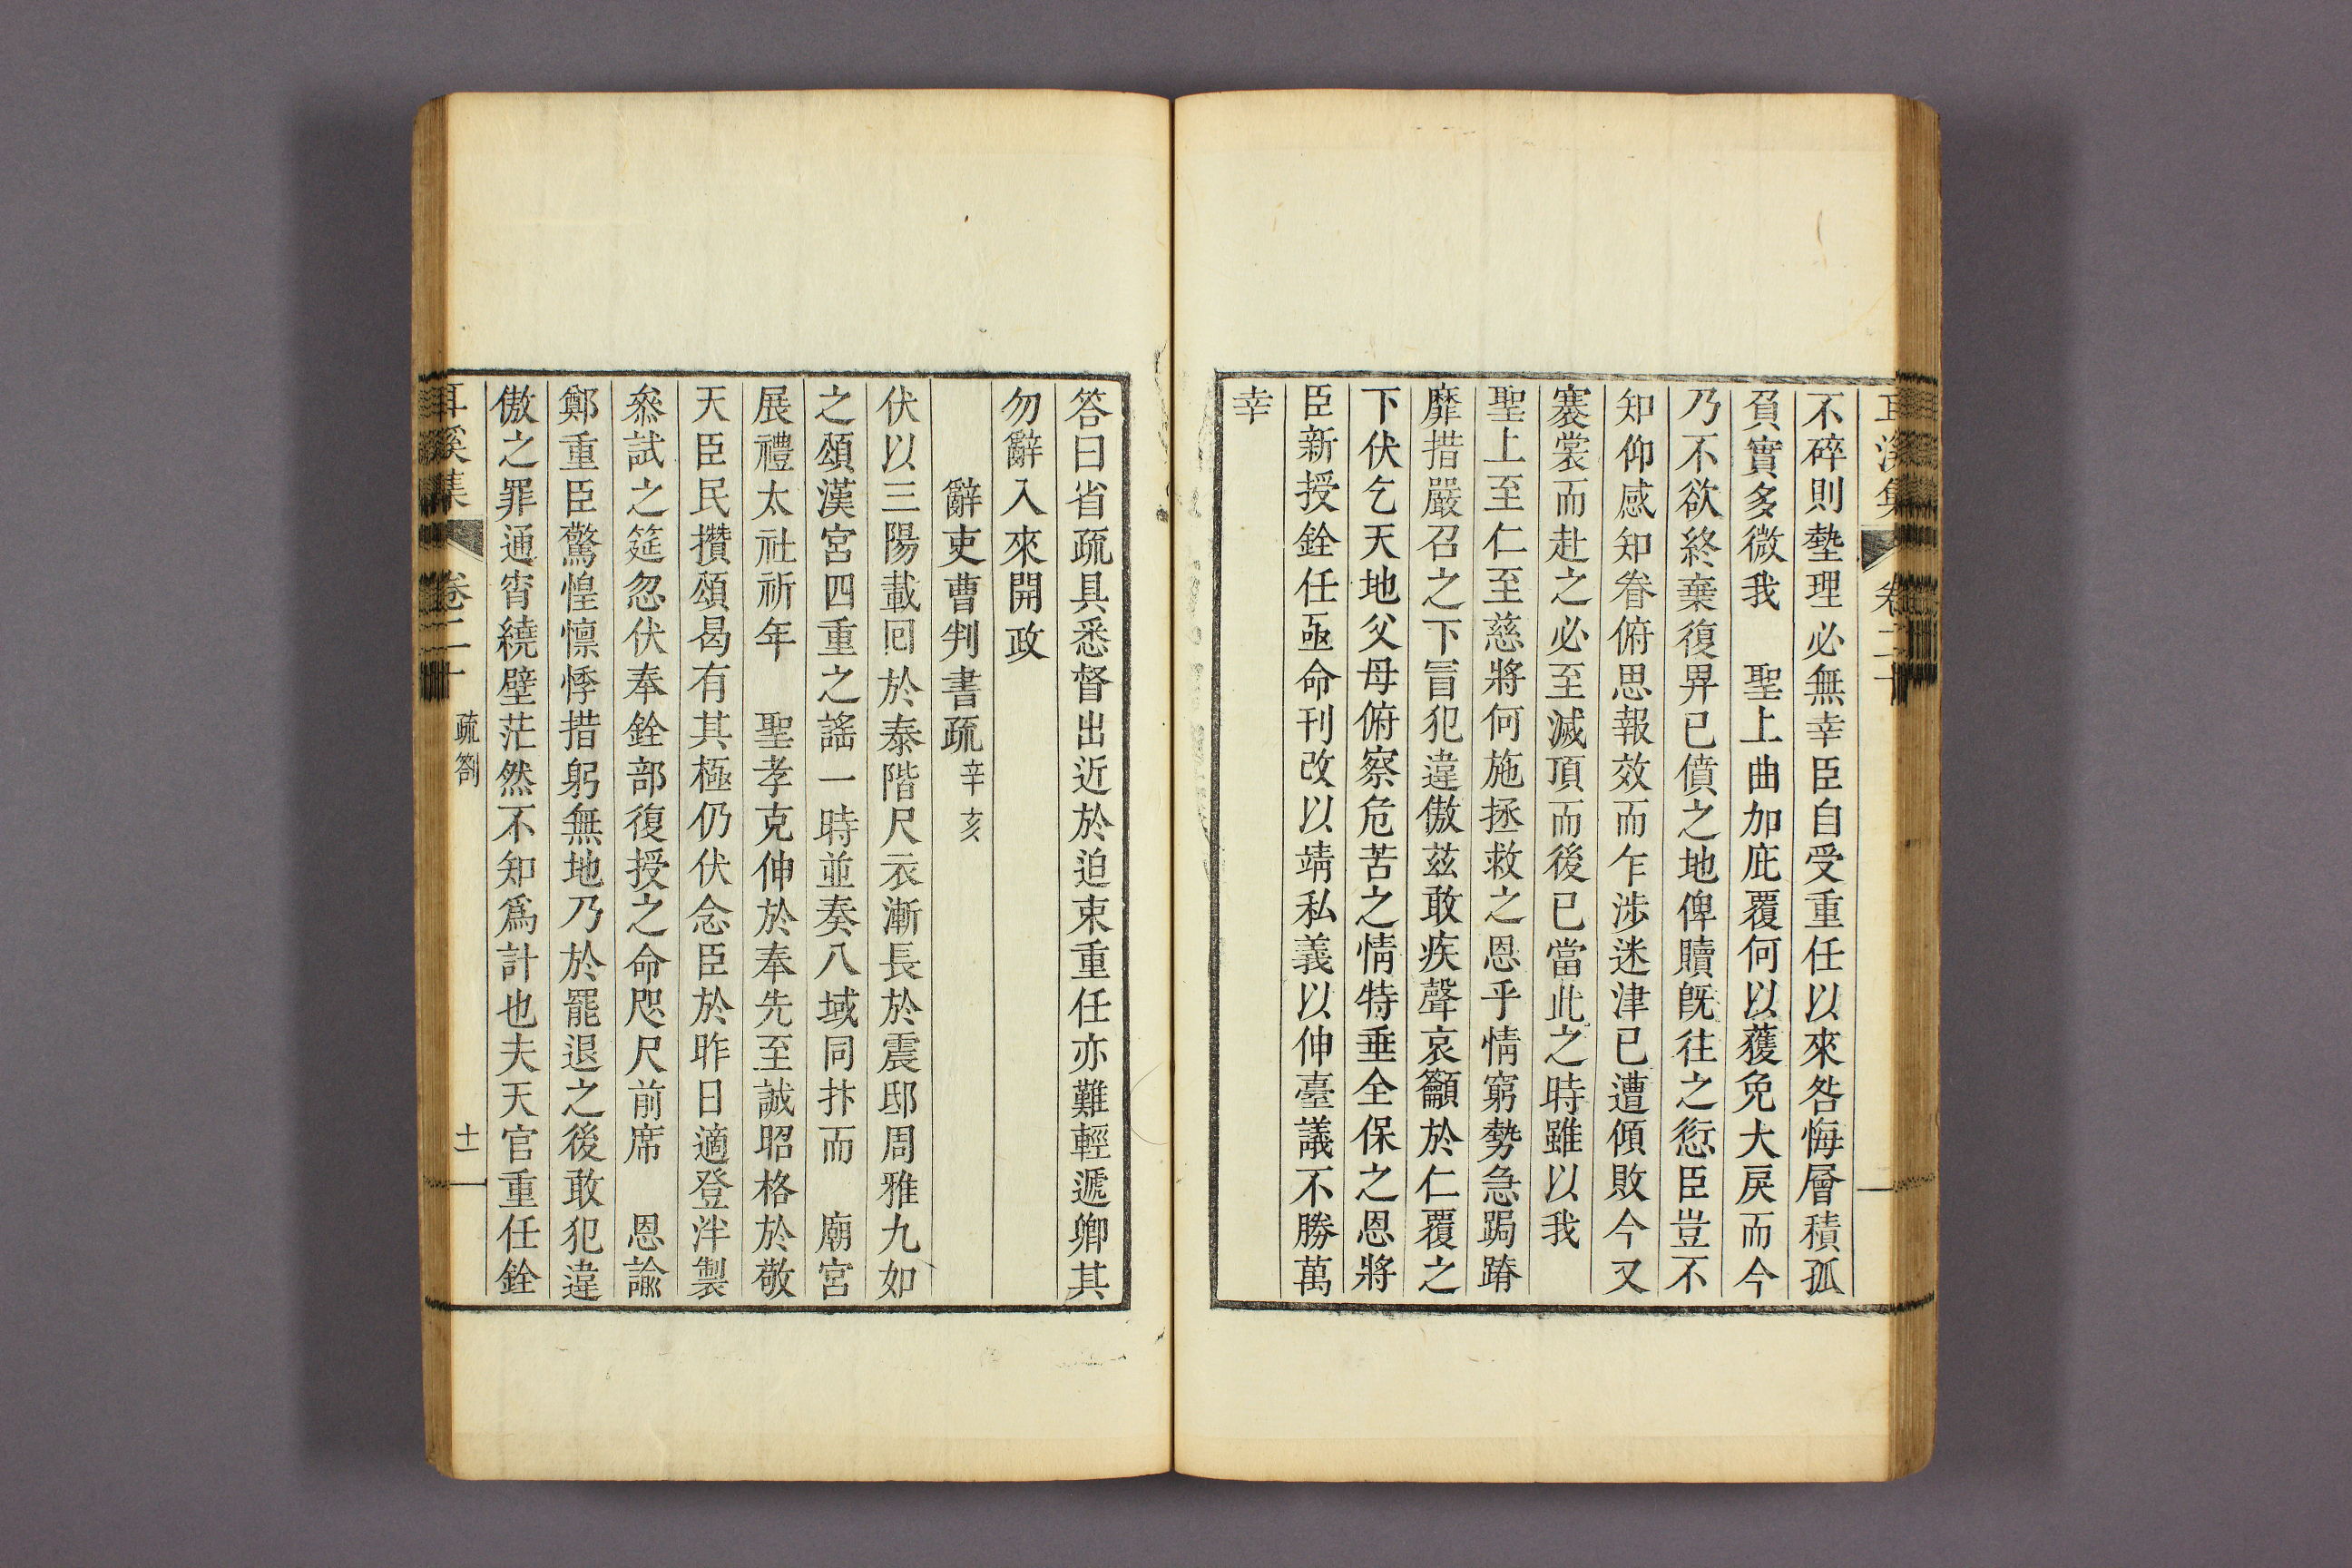 耳溪集 卷二十
不碎則墊理必無幸臣自受重任以來咎悔層積孤
負實多微我 聖上曲加庇覆何以獲免大戾而今
乃不欲終棄復畀已僨之地俾贖旣往之愆臣豈不
知仰感知眷俯思報效而乍涉迷津已遭傾敗今又
褰裳而赴之必至滅頂而後已當此之時雖以我
聖上至仁至慈將何施拯救之恩乎情窮勢急跼蹐
靡措嚴召之下冒犯違傲茲敢疾聲哀籲於仁覆之
下伏乞天地父母俯察危苦之情特垂全保之恩將
臣新授銓任亟命刊改以靖私義以伸臺議不勝萬
幸
答曰省疏具悉督出近於迫束重任亦難輕遞卿其
勿辭入來開政
辭吏曹判書疏 辛亥
伏以三陽載囘於泰階尺衣漸長於震邸周雅九如
之頌漢宮四重之謠一時並奏八域同抃而 廟宮
展禮太社祈年 聖孝克伸於奉先至誠昭格於敬
天臣民攢頌曷有其極仍伏念臣於昨日適登泮製
叅試之筵忽伏奉銓部復授之命咫尺前席 恩諭
鄭重臣驚惶懍悸措躬無地乃於罷退之後敢犯違
傲之罪通宵繞壁茫然不知爲計也夫天官重任銓
耳溪集 卷二十 疏劄 十一